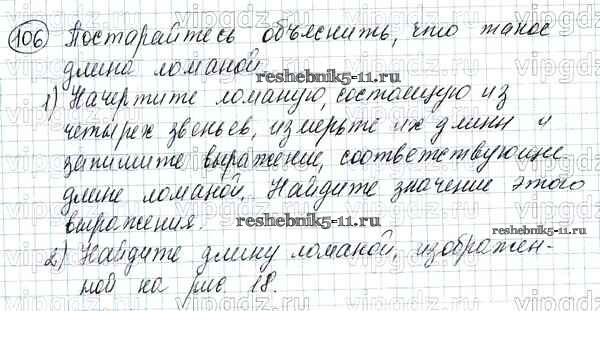 106 Постарайтесь объяснить, что такое
длина ломаной.
reshebnik5-11.ru
1) Начертите ломаную, состоящую из
четырех звеньев, измерьте их длины и
запишите выражение, соответствующее
длине ломаной. Найдите значение этого
выражения.
reshebnik5-11.ru
2) Найдите длину ломаной, изображен-
ной на рис. 18.